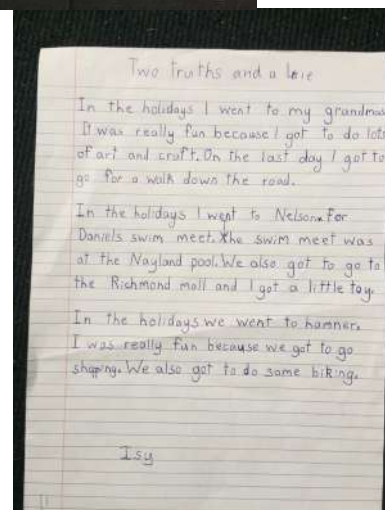 Two truths and a lie
In the holidays I went to my grandmas
It was really fun because I got to do lots
of art and craft. On the last day I got to
go for a walk down the road.
In the holidays I went to Nelson for
Daniels swim meet. The swim meet was
at the Nayland pool. We also got to go to
the Richmond mall and I got a little toy.
In the holidays we went to hamner.
I was really fun because we got to go
shoping. We also got to do some biking.
Isy